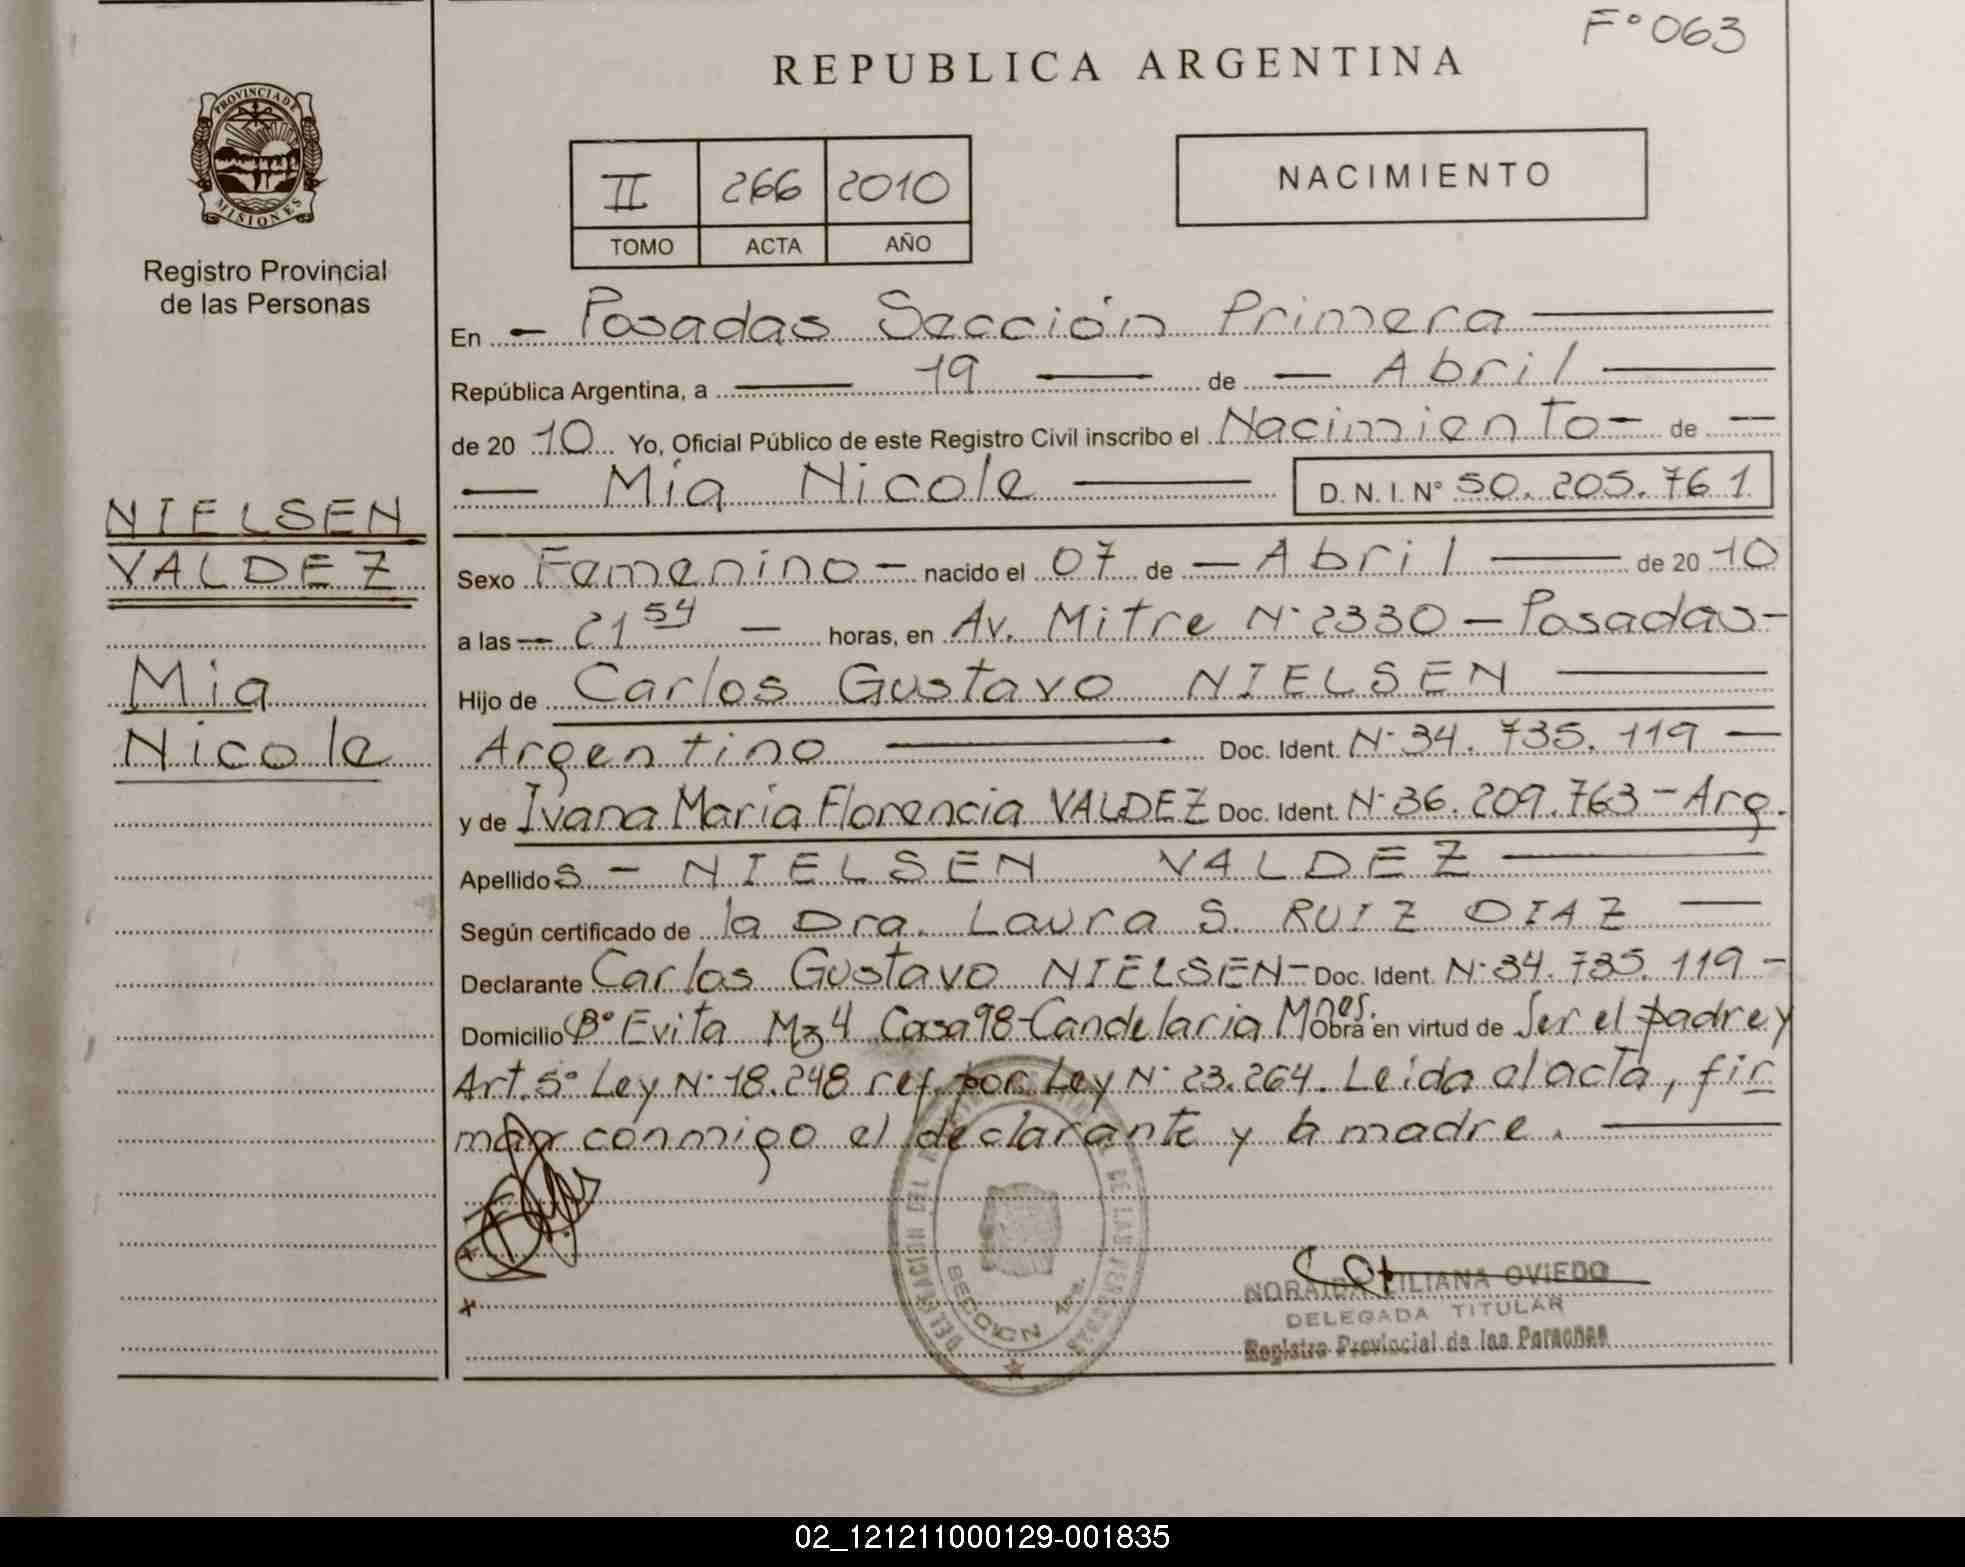 F° 063
REPUBLICA ARGENTINA
PROVINCIA DE
MISIONES
Registro Provincial
de las Personas
II 266 2010
TOMO ACTA AÑO
NACIMIENTO
En - Posadas Sección Primera
República Argentina, a 19 de - Abril
de 20 10 Yo, Oficial Público de este Registro Civil inscribo el Nacimiento - de -
Mía Nicole D.N.I. N° 50.205.761
NIELSEN
VALDEZ
Mia
Nicole
Sexo Femenino - nacido el 07 de - Abril de 20 10
a las - 21 54 - horas, en Av. Mitre N° 2330 - Posadas -
Hijo de Carlos Gustavo NIELSEN
Argentino Doc. Ident. N° 34.735.119 -
y de Ivana María Florencia VALDEZ Doc. Ident. N° 36.209.763 - Arg.
Apellidos - NIELSEN VALDEZ
Según certificado de la Dra. Laura S. RUIZ DIAZ
Declarante Carlos Gustavo NIELSEN - Doc. Ident. N° 34.735.119 -
Domicilio B° Evita Mz 4 Casa 98 - Candelaria Mnes. Obra en virtud de Ser el padre y
Art. 5° Ley N° 18.248 ref. por Ley N° 23.264. Leída el acta, fir
man conmigo el declarante y la madre.
x
x
SECCION
NORAIDA LILIANA OVIEDO
DELEGADA TITULAR
Registro Provincial de las Personas
02_121211000129-001835